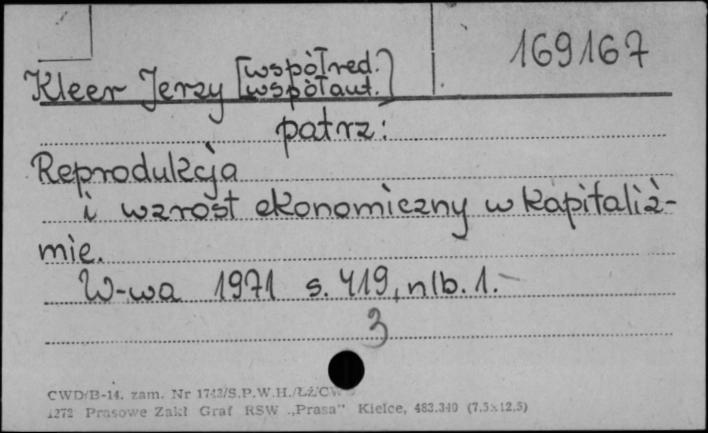 169167
Kleer Jerzy [współred.
współaut.]
patrz:
Reprodukcja
i wzrost ekonomiczny w kapitaliź-
mie.
W-wa 1971 s. 419, nlb. 1.-
3
CWD/B-14. zam. Nr 1742/S.P.W.H./ŁŻ/CW
1272 Prasowe Zakł Graf RSW „Prasa" Kielce, 483.340 (7,5x12,5)